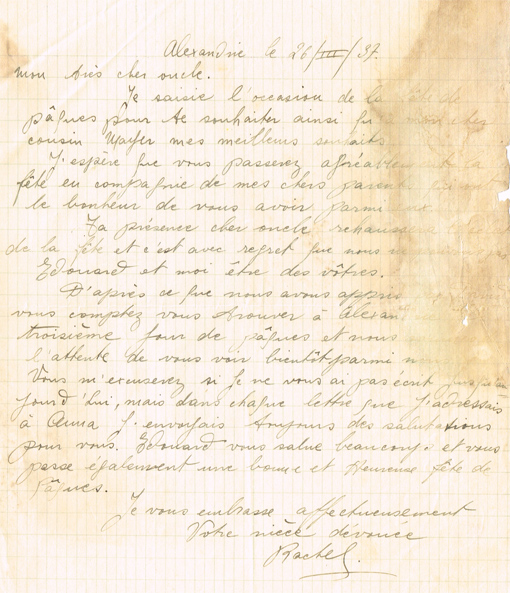 Alexandrie le 26/III/37.
mon très cher oncle.
Je saisie l'occasion de la fête de
pâques pour te souhaiter ainsi cher
cousin mes meilleurs souhaits
J'espère que vous passerez agréablement la
fête en compagnie de mes chers parents qui ont
le bonheur de vous avoir parmi eux
Ta présence cher oncle rehaussera
de la fête et c'est avec regret que nous ne
Edouard et moi être des vôtres.
D'après ce que nous avons appris
vous comptez vous trouver à Alexan
troisième jour de pâques et nous
l'attente de vous voir bientôt parmi nous
Vous m'excuserez si je ne vous ai pas écrit jusqu'au
jourd'hui, mais dans chaque lettre que j'adressais
à Anna J'envoyais toujours des salutations
pour vous. Edouard vous salue beaucoup. et vous
passe également une bonne et Heureuse fête de
Pâques.
Je vous embrasse affectueusement
Votre nièce dévouée
Rachel.